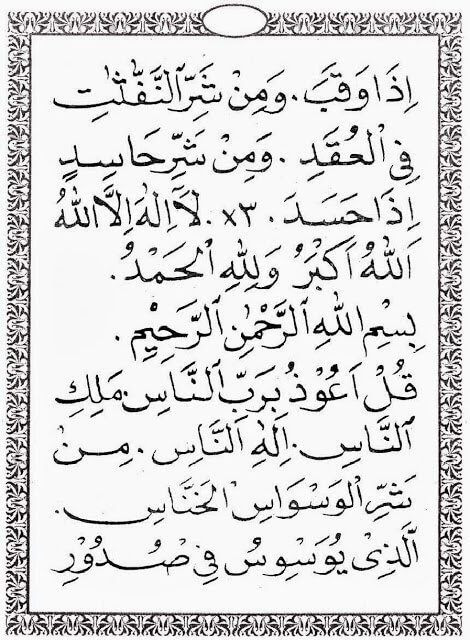 اِذَا وَقَبَ. وَمِنْ شَرِّ النَّفّٰثٰتِ
فِى الْعُقَدِ. وَمِنْ شَرِّ حَاسِدٍ
اِذَا حَسَدَ. ٣×. لَآ اِلٰهَ اِلَّا اللّٰهُ
اَللّٰهُ اَكْبَرُ وَلِلّٰهِ الْحَمْدُ.
بِسْمِ اللّٰهِ الرَّحْمٰنِ الرَّحِيْمِ.
قُلْ اَعُوْذُ بِرَبِّ النَّاسِ. مَلِكِ
النَّاسِ. اِلٰهِ النَّاسِ. مِنْ
شَرِّ الْوَسْوَاسِ الْخَنَّاسِ.
الَّذِىْ يُوَسْوِسُ فِى صُدُوْرِ